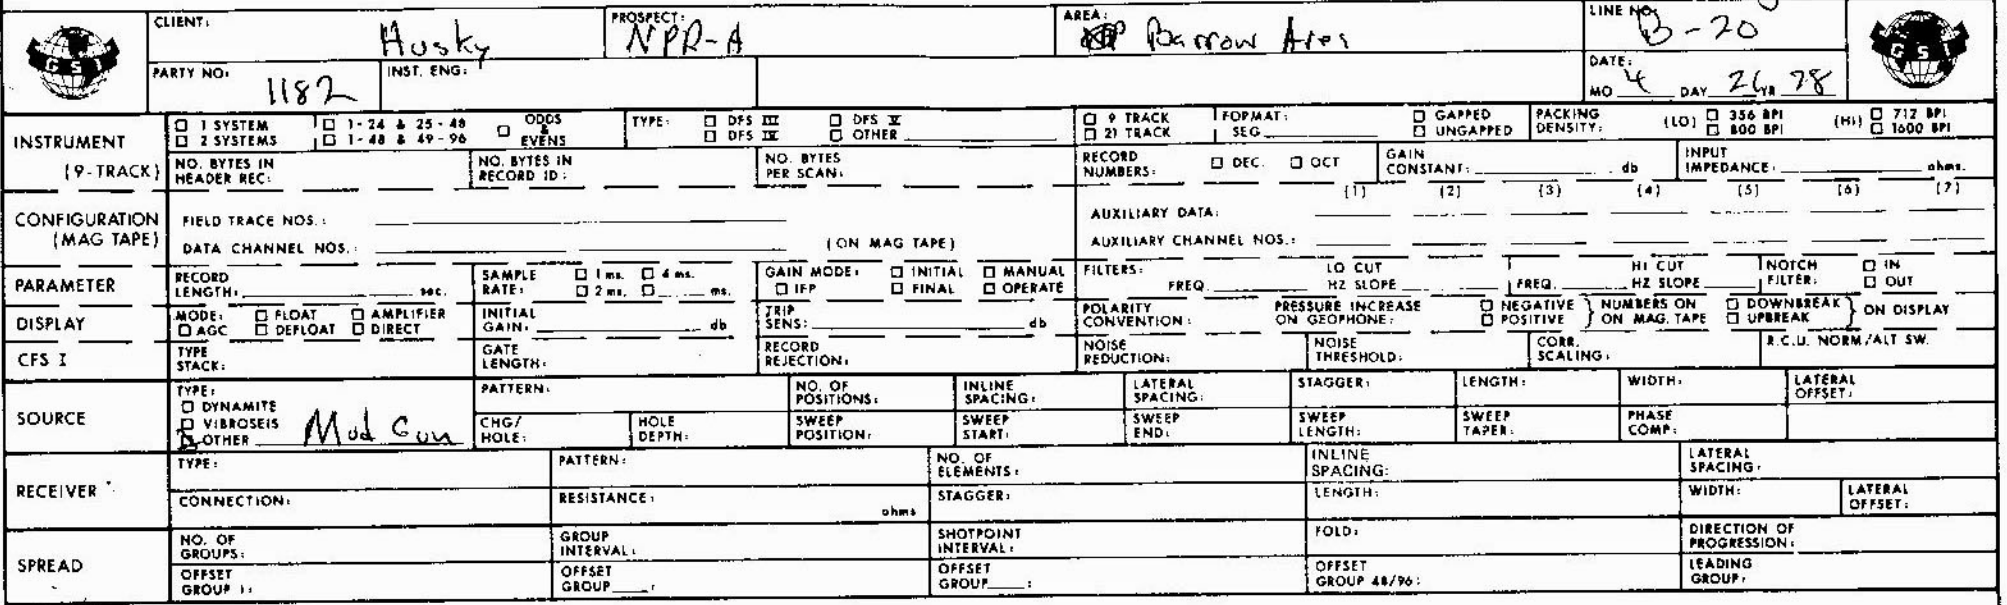 CLIENT: Husky PROSPECT: NPR-A AREA: Barrow Area LINE NO. B-20
GSI GSI
PARTY NO: 1182 INST. ENG: DATE: MO 4 DAY 26 YR 78
INSTRUMENT (9-TRACK)
□ 1 SYSTEM □ 1-24 & 25-48 □ ODDS & EVENS TYPE: □ DFS III □ DFS V □ 9 TRACK FORMAT: □ GAPPED PACKING DENSITY: (LO) □ 356 BPI (HI) □ 712 BPI
□ 2 SYSTEMS □ 1-48 & 49-96 □ DFS IV □ OTHER □ 21 TRACK SEG □ UNGAPPED □ 800 BPI □ 1600 BPI
NO. BYTES IN HEADER REC: NO. BYTES IN RECORD ID: NO. BYTES PER SCAN: RECORD NUMBERS: □ DEC. □ OCT GAIN CONSTANT: db INPUT IMPEDANCE: ohms.
CONFIGURATION (MAG TAPE)
(1) (2) (3) (4) (5) (6) (7)
FIELD TRACE NOS.: AUXILIARY DATA:
DATA CHANNEL NOS.: (ON MAG TAPE) AUXILIARY CHANNEL NOS.:
PARAMETER RECORD LENGTH: sec. SAMPLE RATE: □ 1 ms. □ 4 ms. □ 2 ms. □ ms. GAIN MODE: □ INITIAL □ MANUAL □ IFP □ FINAL □ OPERATE FILTERS: FREQ LO CUT HZ SLOPE FREQ HI CUT HZ SLOPE NOTCH FILTER: □ IN □ OUT
DISPLAY MODE: □ FLOAT □ AMPLIFIER □ AGC □ DEFLOAT □ DIRECT INITIAL GAIN: db TRIP SENS: db POLARITY CONVENTION: PRESSURE INCREASE ON GEOPHONE: □ NEGATIVE □ POSITIVE } NUMBERS ON ON MAG. TAPE □ DOWNBREAK □ UPBREAK } ON DISPLAY
CFS I TYPE STACK: GATE LENGTH: RECORD REJECTION: NOISE REDUCTION: NOISE THRESHOLD: CORR. SCALING: R.C.U. NORM/ALT SW.
SOURCE TYPE: □ DYNAMITE □ VIBROSEIS ☒ OTHER Mud Gun
PATTERN: NO. OF POSITIONS: INLINE SPACING: LATERAL SPACING: STAGGER: LENGTH: WIDTH: LATERAL OFFSET:
CHG/HOLE: HOLE DEPTH: SWEEP POSITION: SWEEP START: SWEEP END: SWEEP LENGTH: SWEEP TAPER: PHASE COMP:
RECEIVER TYPE: PATTERN: NO. OF ELEMENTS: INLINE SPACING: LATERAL SPACING:
CONNECTION: RESISTANCE: ohms STAGGER: LENGTH: WIDTH: LATERAL OFFSET:
SPREAD NO. OF GROUPS: GROUP INTERVAL: SHOTPOINT INTERVAL: FOLD: DIRECTION OF PROGRESSION:
OFFSET GROUP 1: OFFSET GROUP : OFFSET GROUP : OFFSET GROUP 48/96: LEADING GROUP: